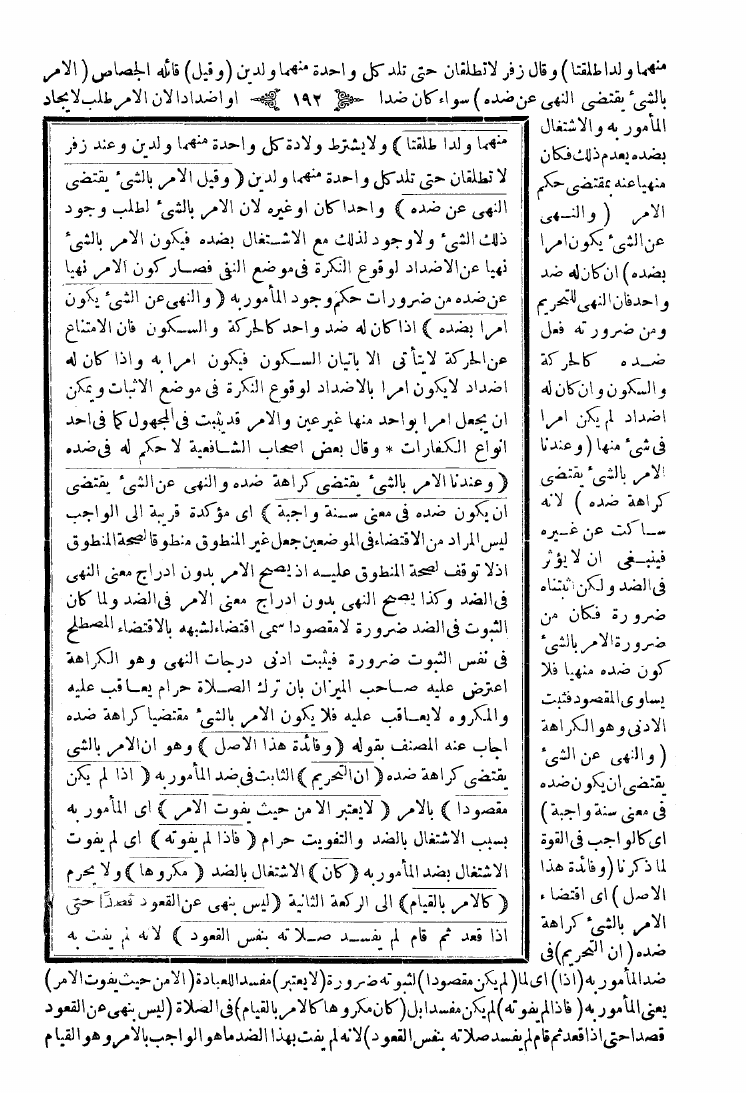 منهما ولدا طلقتا) وقال زفر لاتطلقان حتى تلد كل واحدة منهما ولدين (وقيل) قائله الجصاص (الامر
بالشئ يقتضى النهى عن ضده) سواء كان ضدا
١٩٢
او اضدادا لان الامر طلب لايجاد
المأمور به والاشتغال
بضده يعدم ذلك فكان
منهيا عنه بمقتضى حكم
الامر (والنهى
عن الشئ يكون امرا
بضده) ان كان له ضد
واحد فان النهى للتحريم
ومن ضرورته فعل
ضده كالحركة
والسكون وان كان له
اضداد لم يكن امرا
فى شئ منها (وعندنا
الامر بالشئ يقتضى
كراهة ضده) لانه
ساكت عن غيره
فينبغى ان لا يؤثر
فى الضد ولكن اثبتناه
ضرورة فكان من
ضرورة الامر بالشئ
كون ضده منهيا فلا
يساوى المقصود فثبت
الادنى وهو الكراهة
(والنهى عن الشئ
يقتضى ان يكون ضده
فى معنى سنة واجبة)
اى كالواجب فى القوة
لما ذكرنا (وفائدة هذا
الاصل) اى اقتضاء
الامر بالشئ كراهة
ضده (ان التحريم) فى
ضد المأمور به (اذا) اى لما (لم يكن مقصودا) لثبوته ضرورة (لا يعتبر) مفسدا للعبادة (الا من حيث يفوت الامر)
يعنى المأمور به (فاذا لم يفوته) لم يكن مفسدا بل (كان مكروها كالامر بالقيام) فى الصلاة (ليس بنهى عن القعود
قصدا حتى اذا قعد ثم قام لم يفسد صلاته بنفس القعود) لانه لم يفت بهذا الضد ما هو الواجب بالامر وهو القيام
منهما ولدا طلقتا) ولايشترط ولادة كل واحدة منهما ولدين وعند زفر
لا تطلقان حتى تلد كل واحدة منهما ولدين (وقيل الامر بالشئ يقتضى
النهى عن ضده) واحدا كان او غيره لان الامر بالشئ لطلب وجود
ذلك الشئ ولا وجود لذلك مع الاشتغال بضده فيكون الامر بالشئ
نهيا عن الاضداد لوقوع النكرة فى موضع النفى فصار كون الامر نهيا
عن ضده من ضرورات حكم وجود المأمور به (والنهى عن الشئ يكون
امرا بضده) اذا كان له ضد واحد كالحركة والسكون فان الامتناع
عن الحركة لايتأتى الا باتيان السكون فيكون امرا به واذا كان له
اضداد لايكون امرا بالاضداد لوقوع النكرة فى موضع الاثبات ويمكن
ان يجعل امرا بواحد منها غير عين والامر قد يثبت فى المجهول كما فى احد
انواع الكفارات * وقال بعض اصحاب الشافعية لا حكم له فى ضده
(وعندنا الامر بالشئ يقتضى كراهة ضده والنهى عن الشئ يقتضى
ان يكون ضده فى معنى سنة واجبة) اى مؤكدة قريبة الى الواجب
ليس المراد من الاقتضاء فى الموضعين جعل غير المنطوق منطوقا لصحة المنطوق
اذ لا توقف لصحة المنطوق عليه اذ يصح الامر بدون ادراج معنى النهى
فى الضد وكذا يصح النهى بدون ادراج معنى الامر فى الضد ولما كان
الثبوت فى الضد ضرورة لامقصودا سمى اقتضاء لشبهه بالاقتضاء المصطلح
فى نفس الثبوت ضرورة فيثبت ادنى درجات النهى وهو الكراهة
اعترض عليه صاحب الميزان بان ترك الصلاة حرام يعاقب عليه
والمكروه لايعاقب عليه فلا يكون الامر بالشئ مقتضيا كراهة ضده
اجاب عنه المصنف بقوله (وفائدة هذا الاصل) وهو ان الامر بالشئ
يقتضى كراهة ضده (ان التحريم) الثابت فى ضد المأمور به (اذا لم يكن
مقصودا) بالامر (لايعتبر الا من حيث يفوت الامر) اى المأمور به
بسبب الاشتغال بالضد والتفويت حرام (فاذا لم يفوته) اى لم يفوت
الاشتغال بضد المأمور به (كان) الاشتغال بالضد (مكروها) ولا يحرم
(كالامر بالقيام) الى الركعة الثانية (ليس بنهى عن القعود قصدا حتى
اذا قعد ثم قام لم يفسد صلاته بنفس القعود) لانه لم يفت به